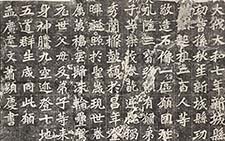 大代太和七年新城縣
功曹孫秋生新城縣功
曹劉起祖二百人等
敬造石像一區願國祚
永隆三寶彌顯有願弟
子等榮茂春葩庭槐獨
秀蘭條鼓馥於昌年金
暉誕照於聖歲現世眷
屬萬福雲歸洙輪疊駕
元世父母及弟子等來
身神騰九空迹登十地
五道群生咸同此願
孟廣達文蕭顯慶書